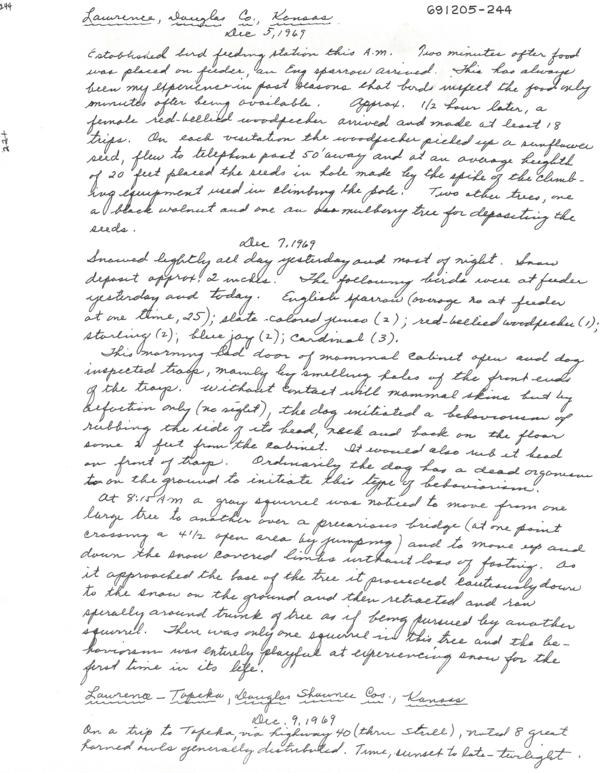 244
Lawrence, Douglas Co., Kansas.
691205-244
Dec 5, 1969
Established bird feeding station this A.M. Two minutes after food
was placed on feeder, an Eng sparrow arrived. This has always
been my experience in past seasons that birds inspect the food only
minutes after being available. Approx. 1/2 hour later, a
female red-bellied woodpecker arrived and made at least 18
trips. On each visitation the woodpecker picked up a sunflower
seed, flew to telephone post 50' away and at an average heighth
of 20 feet placed the seeds in hole made by the spike of the climb-
ing equipment used in climbing the pole. Two other trees, one
a black walnut and one an mulberry tree for depositing the
seeds.
Dec 7, 1969
Snowed lightly all day yesterday and most of night. Snow
deposit approx. 2 inches. The following birds were at feeder
yesterday and today. English sparrow (average no at feeder
at one time, 25); slate-colored junco (2); red-bellied woodpecker (1);
starling (2); blue jay (2); cardinal (3).
This morning had door of mammal cabinet open and dog
inspected trays, mainly by smelling holes of the front ends
of the trays. Without contact with mammal skins but by
olfaction only (no sight), the dog initiated a behaviorism of
rubbing the side of its head, neck and back on the floor
some 2 feet from the cabinet. It would also rub it head
on front of trays. Ordinarily the dog has a dead organism
on the ground to initiate this type of behaviorism.
At 8:15 AM a gray squirrel was noticed to move from one
large tree to another over a precarious bridge (at one point
crossing a 4 1/2 open area by jumping) and to move up and
down the snow covered limbs without loss of footing. As
it approached the base of the tree it proceeded cautiously down
to the snow on the ground and then retracted and ran
spirally around trunk of tree as if being pursued by another
squirrel. There was only one squirrel in this tree and the be-
haviorism was entirely playful at experiencing snow for the
first time in its life.
Lawrence - Topeka, Douglas Shawnee Cos., Kansas
Dec. 9, 1969
On a trip to Topeka, via highway 40 (thru Stull), noted 8 great
horned owls generally distributed. Time, sunset to late-twilight.